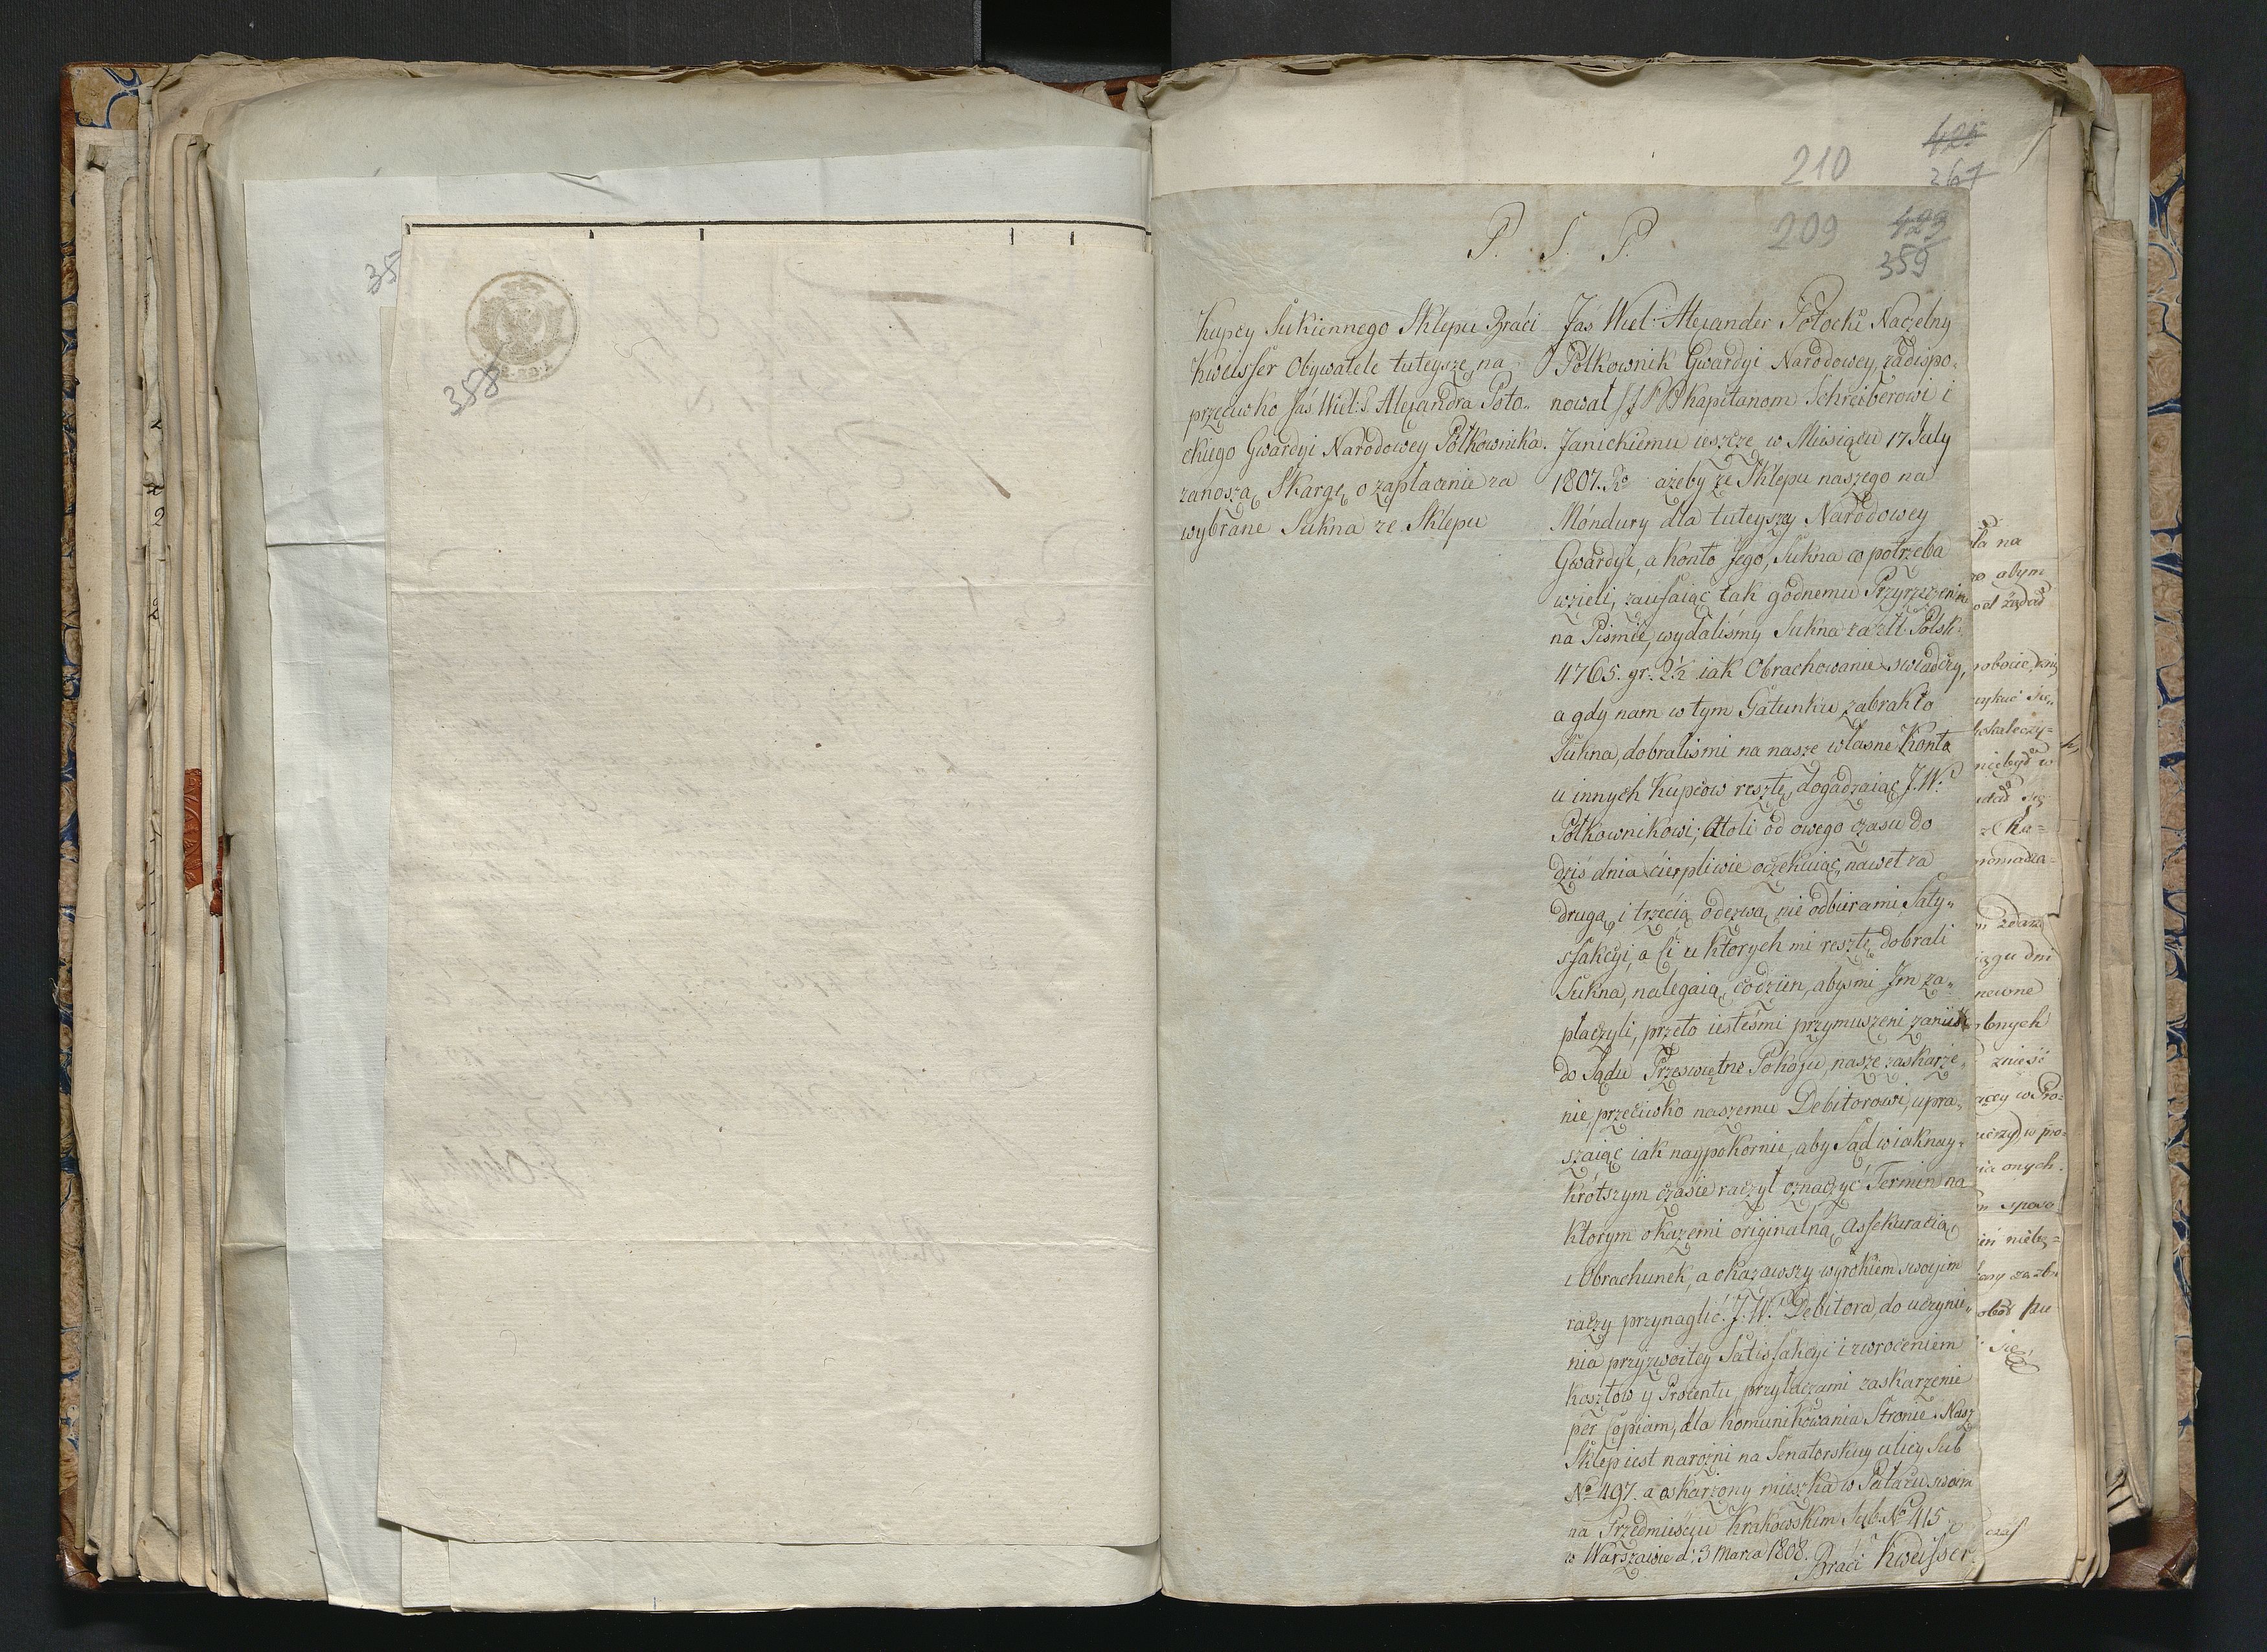 358
210
425
367
P. S. P.
209
423
359
Kupcy Sukiennego Sklepu Braci
Kweisser Obywatele tuteysze, na
przeciwko Jaś Wiel: S. Alexandra Poto„
ckiego Gwardyi Narodowey Półkownika.
zanoszą, Skargę, o zapłacenie za
wybrane Sukna ze Sklepu
Jaś Wiel: Alexander Potocki Naczelny
Półkownik Gwardyi Narodowey, zadispo„
nował JJPP Kapitanom Schreiberowi i
Janickiemu ieszcze w Miesiącu 17 July
1807. ażeby ze Sklepu naszego na
Móndury dla tuteyszey Narodowey
Gwardyi, a konto Jego, Sukna co potrzeba
wzieli, zaufaiąc tak godnemu Przyrzeczeniu
na Piśmie, wydaliśmy Sukna za złt. Polsk:
4765. gr. 2½ iak Obrachowanie swiadczy,
a gdy nam w tym Gatunku zabrakło
Sukna, dobraliśmi na nasze własne Konto
u innych Kupców resztę, dogadzaiąc J. W.
Półkownikowi; Atoli od owego czasu do
dziś dnia cierpliwie oczekuiąc, nawet za
drugą, i trzecią odezwą, nie odbierami Saty„
sfakcyi, a Ci u ktorych mi resztę, dobrali
Sukna, nalegaią, codzien, abyśmi Jm za„
płaczyli, przeto iesteśmi przymuszeni zaniść
do Sądu Przeswiętne Pokoju, nasze zaskarże„
nie, przeciwko naszemu Debitorowi, upra„
szaiąc iak naypokornie, aby Sąd w iaknay„
krótszym czásie raczył oznaczyć Termin na
ktorym okazemi originalną, Assekuracią,
i Obrachunek, a okazawszy wyrokiem swoijm
raczy przynaglić J: W: Debitora, do uczynie„
nia przyzwoitey Satisfakcyi i zwroceniem
kosztow y Procentu, przyłączami zaskarzenie
per Copiam, dla komunikowania Stronie. Nasz
Sklep iest narożni na Senatorskiey ulicy Sub
No 497. a oskarżony mieszka w Pałacu swoim
na Przedmieściu Krakowskim Sub. No 415
w Warszawie d: 3 Marca 1808.
Braci Kweisser